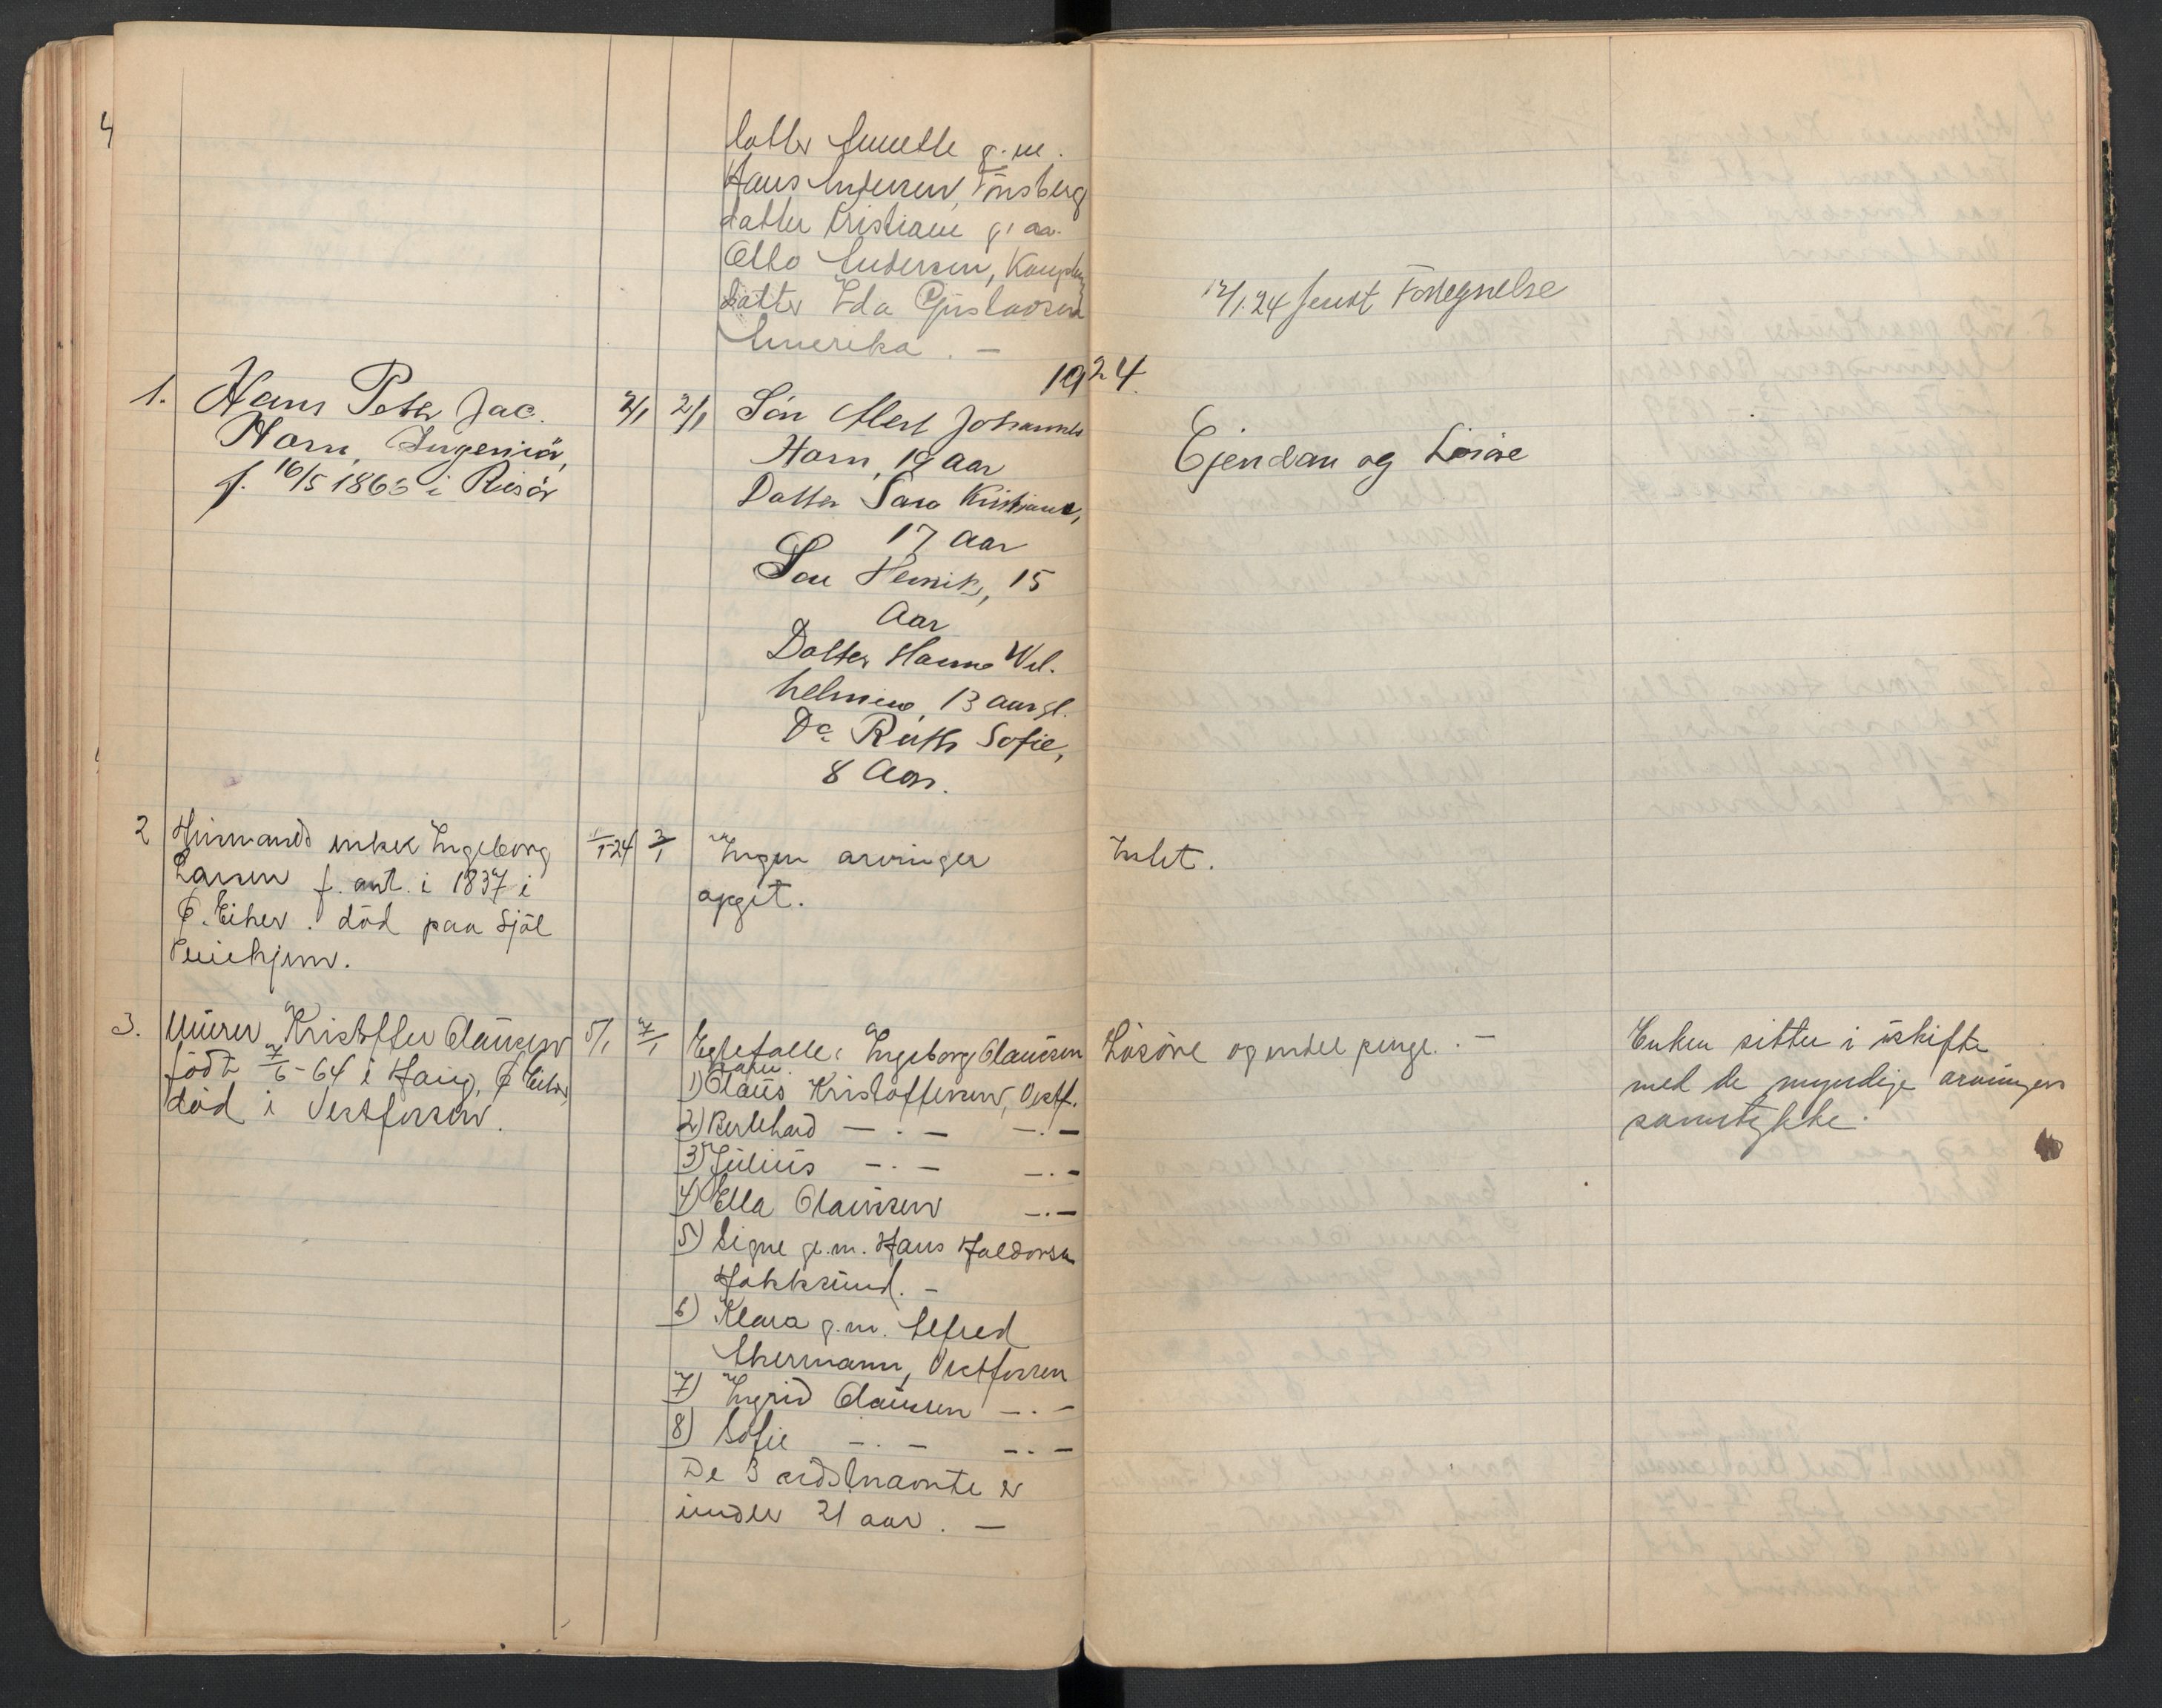 4
datter Anette g.m.
Hans Andersen, Tönsberg
datter Kristiane g.m.
Otto Andersen,
datter Eda Gustavsen
Amerika. —
12/1.24 sendt Fortegnelse
1924.
1. Hans Peter Jac.
Horn, Ingeniör,
f. 16/5 1863 i Risör
2/1 2/1
Sön Albert Johannes
Horn, 19 aar
Datter Sara Kristiane,
17 aar
Sön Henrik, 15
Aar
Datter Hanna Wil-
helmine, 13 aar gl.
Do Ruth Sofie,
8 Aar.
Ejendom og Lösöre
2 Husmands enke Ingeborg
Larsen f. ant. i 1837 i
Ö. Eiker. död paa Sjöl
Pleiehjem.
1/1-24 3/1
Ingen arvinger
opgit.
Intet.
3. Murer Kristoffer Claussen
födt 7/6-64 i Haug, Ö Eiker,
död i Vestfossen.
5/1 7/1
Egtefælle: Ingeborg Claussen
Barn:
1) Claus Kristoffersen, Vestf.
2) Berthard — . — — . —
3) Julius — . — — . —
4) Ella Claussen — . —
5) Signe g.m. Hans Haldorsen
Hokksund. —
6) Klara g.m. Alfred
Akermann, Vestfossen
7) Ingrid Claussen — . —
8) Sofie — . — — . —
De 3 sidstnævnte er
under 21 aar. —
Lösöre og endel penge. . —
Enken sitter i uskifte
med de myndige arvingers
samtykke.